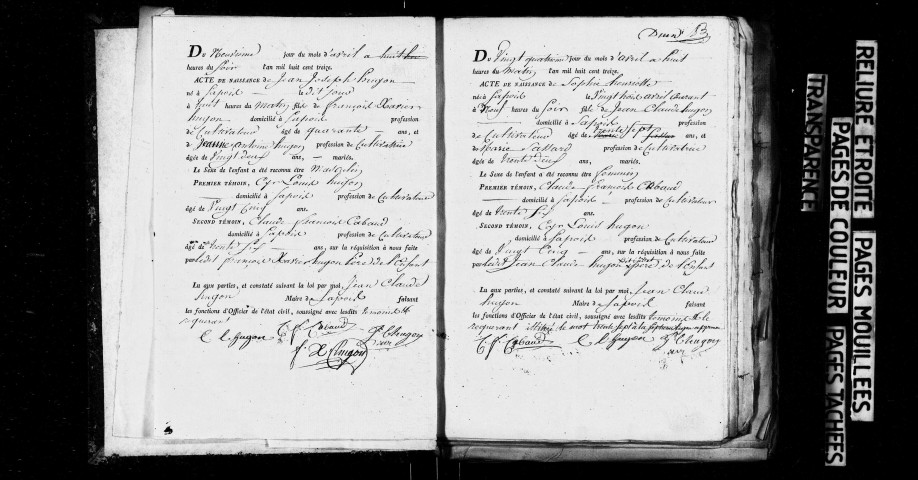 Du Neuvieme jour du mois d'avril a huit
heures du Soir l'an mil huit cent treize.
ACTE DE NAISSANCE de Jean Joseph hugon
né à Lapoid le dit jour
à huit heures du Matin fils de françois Xavier
hugon domicilié à Lapoid profession
de Cultivateur âgé de quarante ans, et
de Jeanne antoine hugon profession de Cultivatrice
âgée de Vingt neuf ans, mariés.
Le Sexe de l'enfant a été reconnu être Masculin
PREMIER TÉMOIN, Louis hugon
domicilié à Lapoid profession de Cultivateur
âgé de Vingt Cinq ans.
SECOND TÉMOIN, Claude françois Cabaud
domicilié à Lapoid profession de Cultivateur
âgé de trente six ans, sur la réquisition à nous faite
par ledit françois Xavier hugon père de l'Enfant
Lu aux parties, et constaté suivant la loi par moi, Jean Claude
hugon Maire de Lapoid faisant
les fonctions d'Officier de l'état civil, soussigné avec lesdits temoins et
requerant
C L hugon C f Cabaud J C hugon
f. X hugon
83
Du Vingt quatrieme jour du mois d'avril a huit
heures du Matin l'an mil huit cent treize.
ACTE DE NAISSANCE de Sophie henriette
né à Lapoid le Vingt trois avril courant
à Neuf heures du Soir fille de Jean Claude hugon
domicilié à Lapoid profession
de Cultivateur âgé de trente sept ans, et
de Marie Passard profession de Cultivatrice
âgée de trente neuf ans, mariés.
Le Sexe de l'enfant a été reconnu être feminin
PREMIER TÉMOIN, Claude françois Cabaud
domicilié à Lapoid profession de Cultivateur
âgé de trente six ans.
SECOND TÉMOIN, Louis hugon
domicilié à Lapoid profession de Cultivateur
âgé de Vingt Cinq ans, sur la réquisition à nous faite
par ledit Jean Claude hugon père de l'Enfant
Lu aux parties, et constaté suivant la loi par moi, Jean Claude
hugon Maire de Lapoid faisant
les fonctions d'Officier de l'état civil, soussigné avec lesdits temoins et le
requerant le mot trente sept à la septieme ligne
C f Cabaud C L hugon J C hugon
RELIURE ETROITE PAGES MOUILLEES
PAGES DE COULEUR PAGES TACHEES
TRANSPARENCE